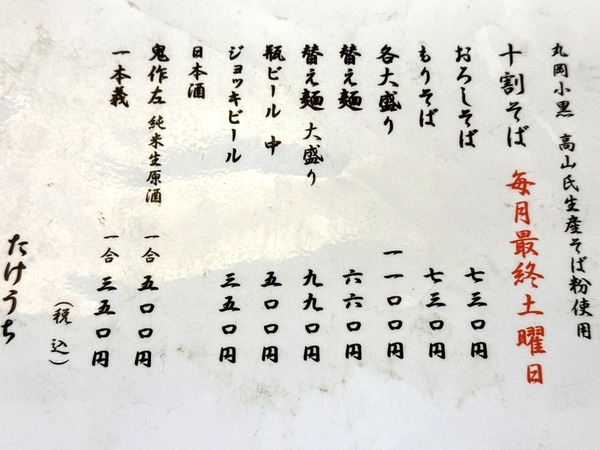 丸岡小黒 高山氏生産そば粉使用
十割そば 毎月最終土曜日
おろしそば 七三〇円
もりそば 七三〇円
各大盛り 一一〇〇円
替え麺 六六〇円
替え麺 大盛り 九九〇円
瓶ビール 中 五〇〇円
ジョッキビール 三五〇円
日本酒
鬼作左 純米生原酒 一合 五〇〇円
一本義 一合 三五〇円
(税込)
たけうち